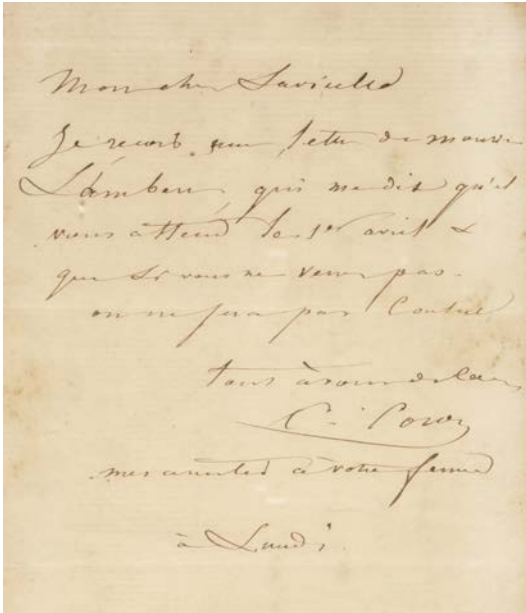 Mon cher Lavieille
Je reçois une lettre de monsr
Lambert, qui me dit qu'il
vous attend le 1er avril &
que si vous ne venez pas
on ne fera pas
tout à vous de cœur
C. Corot
mes amitiés à votre femme
à Lundi.